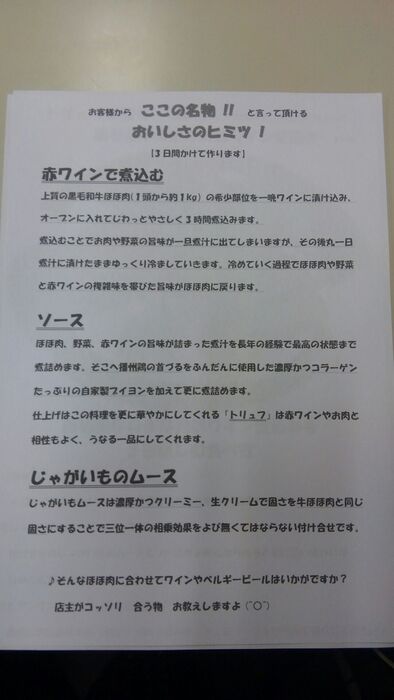 お客様から ここの名物 !! と言って頂ける
おいしさのヒミツ！
【3日間かけて作ります】
赤ワインで煮込む
上質の黒毛和牛ほほ肉(1頭から約1kg) の希少部位を一晩ワインに漬け込み、
オーブンに入れてじわっとやさしく3時間煮込みます。
煮込むことでお肉や野菜の旨味が一旦煮汁に出てしまいますが、その後丸一日
煮汁に漬けたままゆっくり冷ましていきます。冷めていく過程でほほ肉や野菜
と赤ワインの複雑味を帯びた旨味がほほ肉に戻ります。
ソース
ほほ肉、野菜、赤ワインの旨味が詰まった煮汁を長年の経験で最高の状態まで
煮詰めます。そこへ播州鶏の首づるをふんだんに使用した濃厚かつコラーゲン
たっぷりの自家製ブイヨンを加えて更に煮詰めます。
仕上げはこの料理を更に華やかにしてくれる「トリュフ」は赤ワインやお肉と
相性もよく、うなる一品にしてくれます。
じゃがいものムース
じゃがいもムースは濃厚かつクリーミー、生クリームで固さを牛ほほ肉と同じ
固さにすることで三位一体の相乗効果をよび無くてはならない付け合せです。
♪そんなほほ肉に合わせてワインやベルギービールはいかがですか？
店主がコッソリ 合う物 お教えしますよ (^O^)